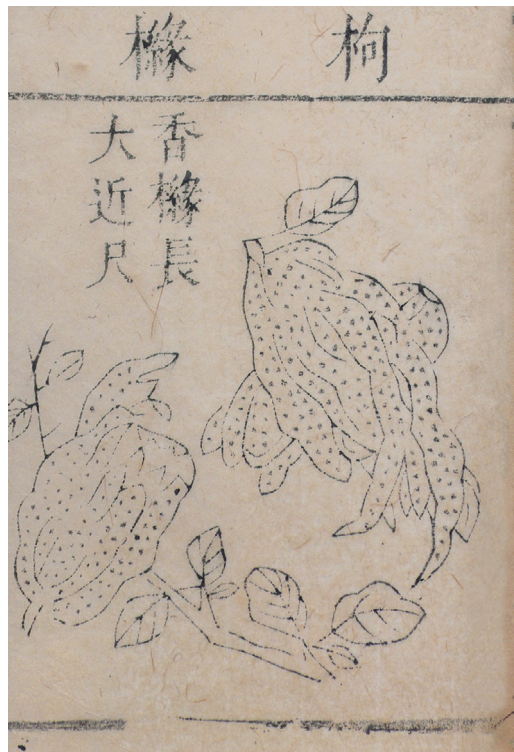 枸櫞
香櫞長
大近尺